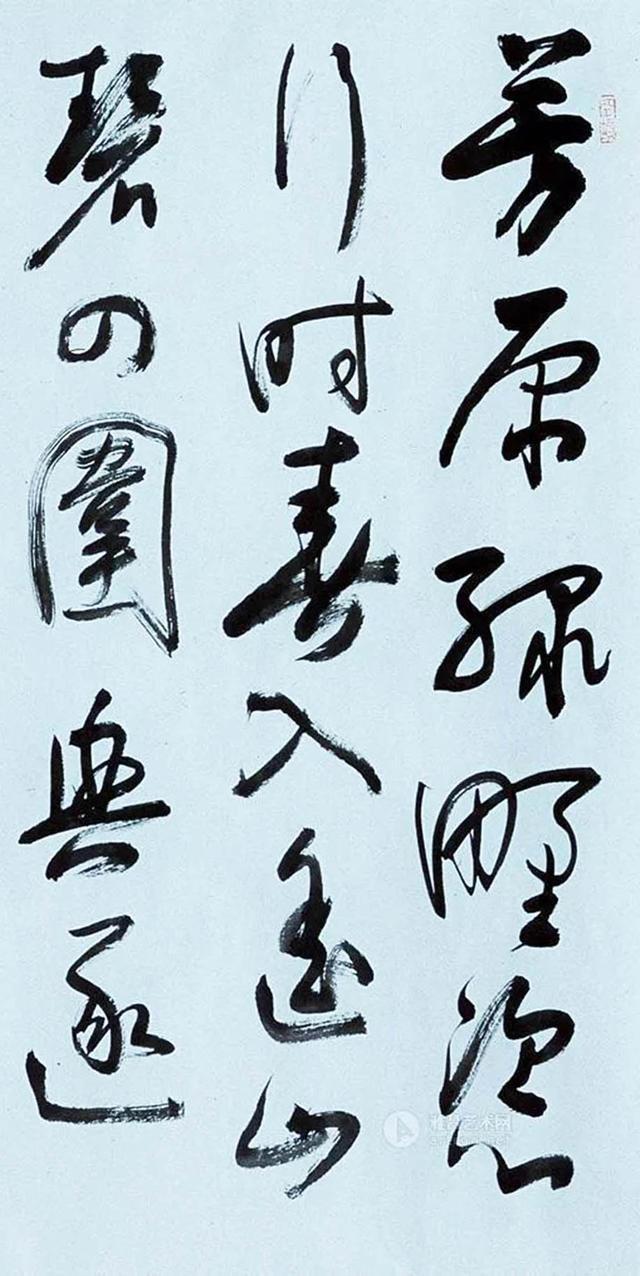 芳原绿野恣
行时春入遥山
碧四围兴逐